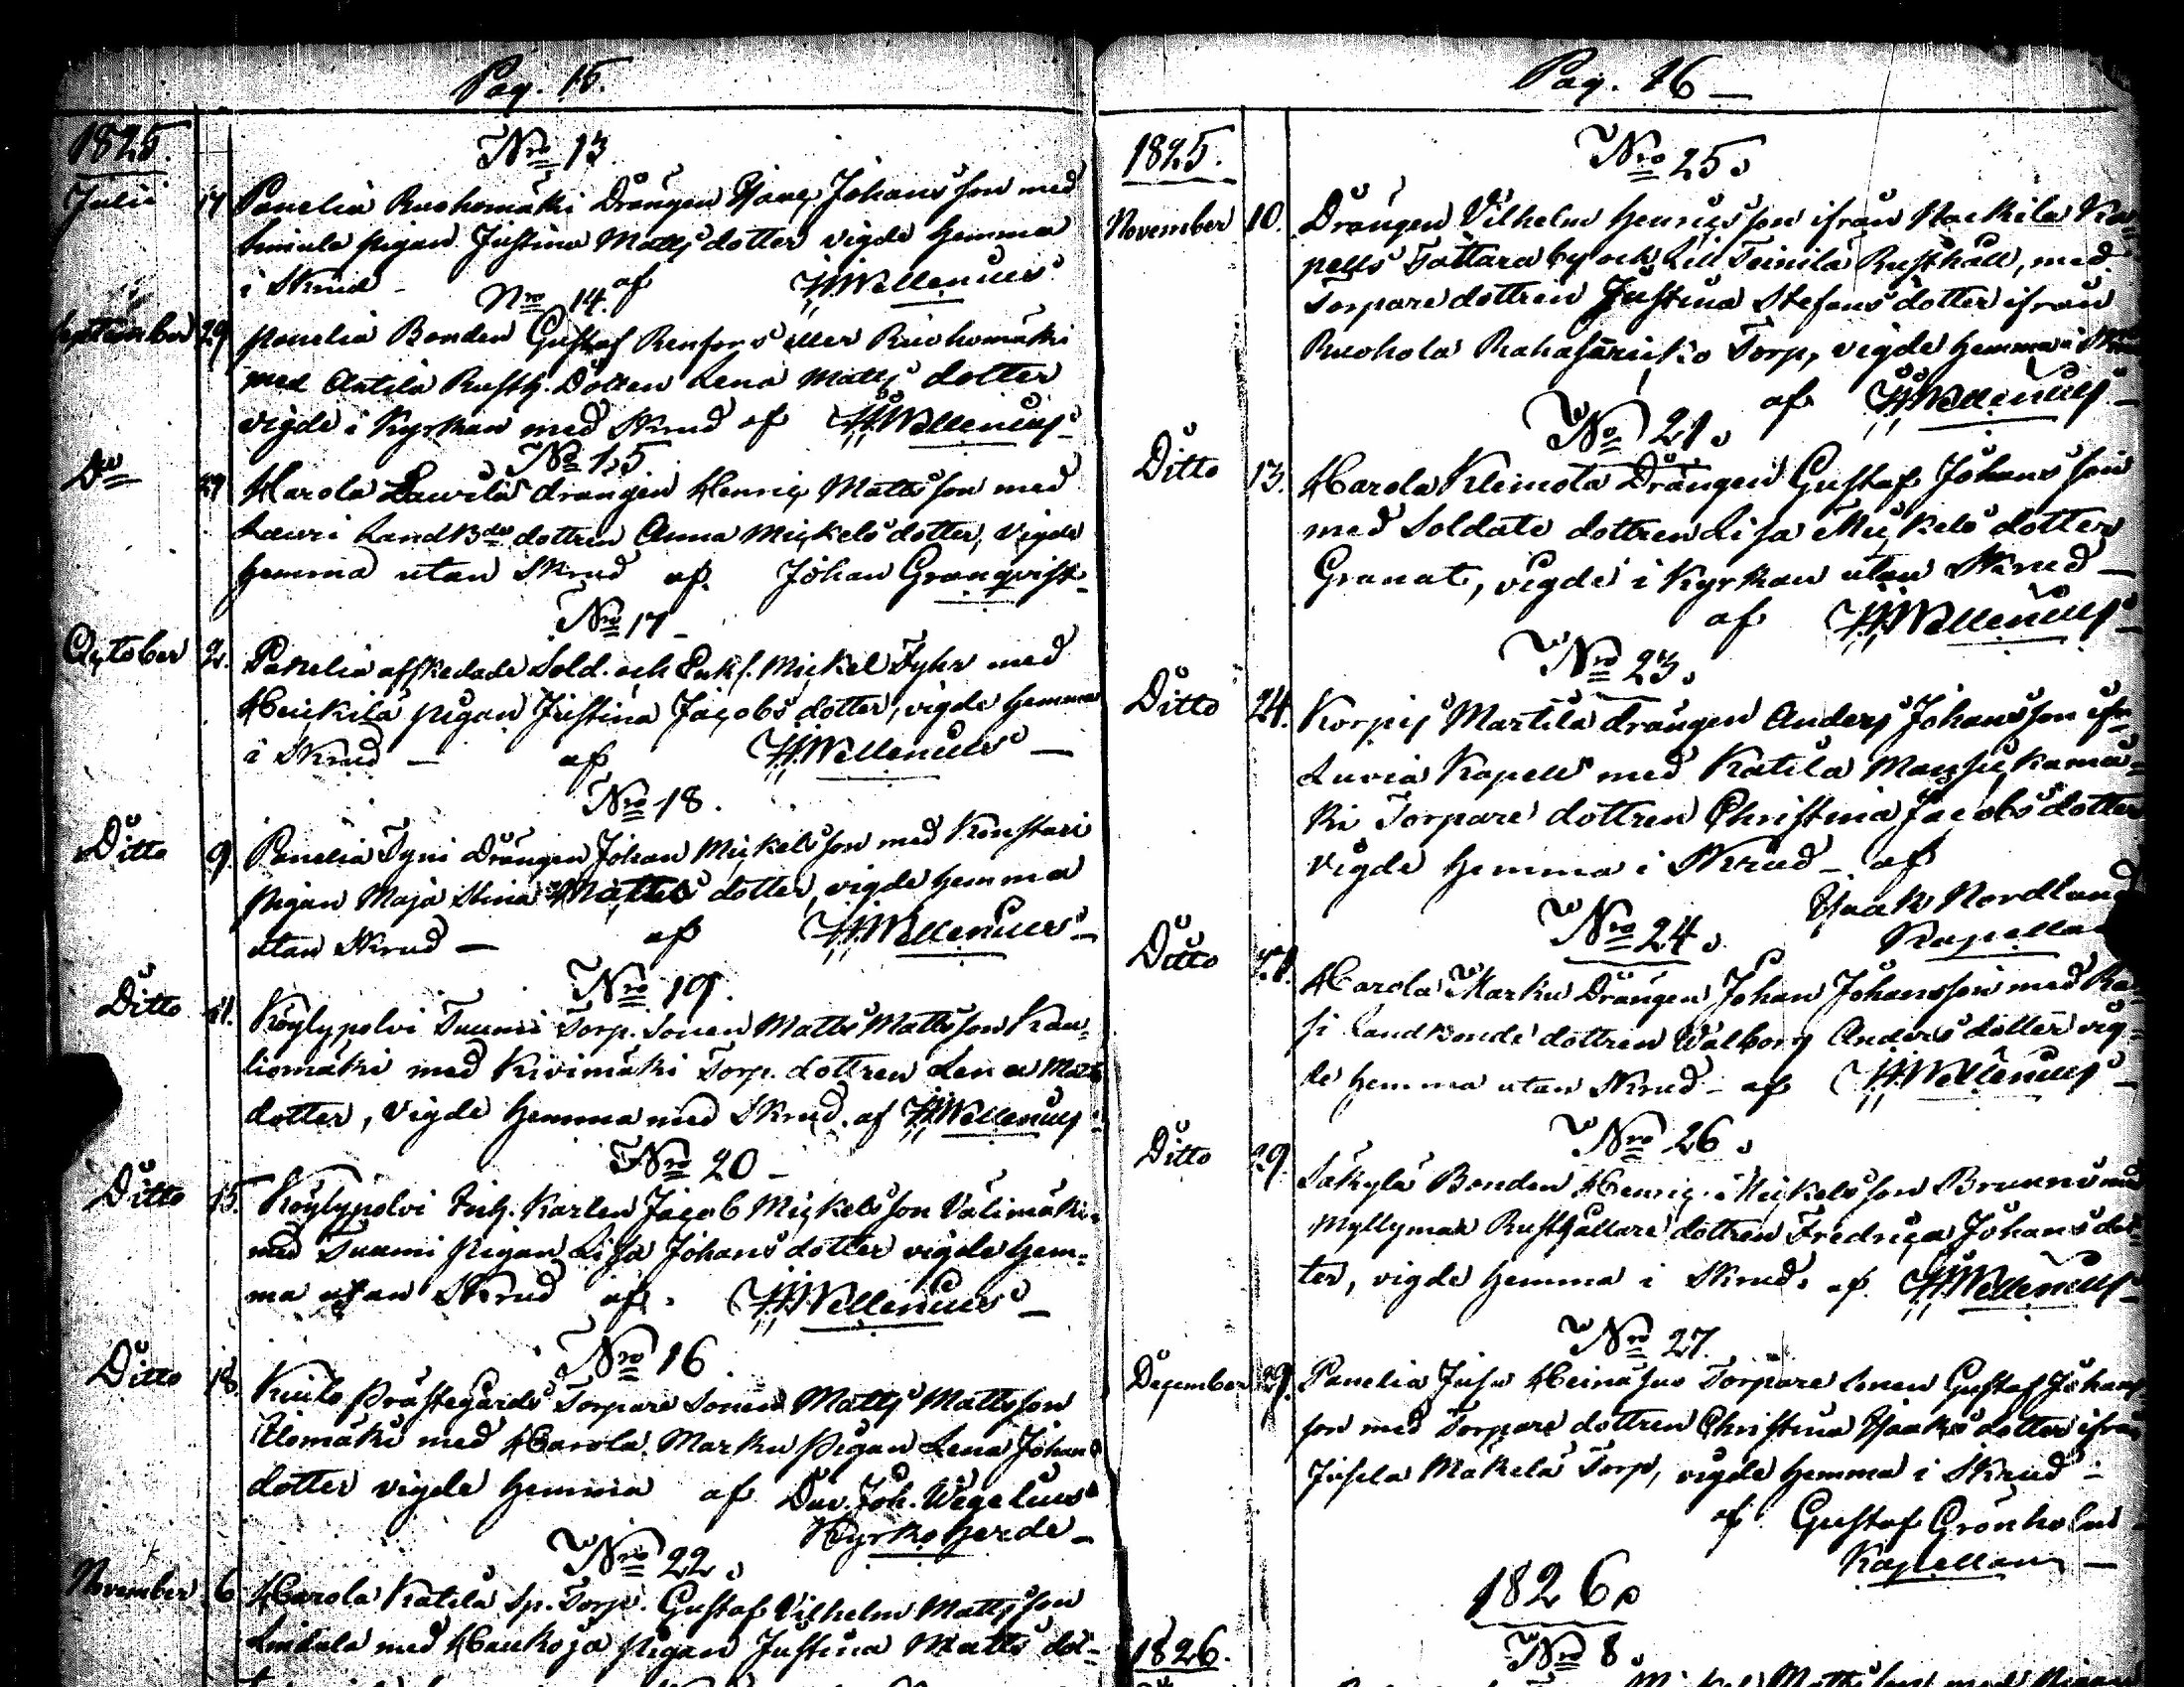 Pag. 15.
1825.
Nro 13.
Julii 17 Panelia Ruohomäki Drängen Isaac Johansson med
pigan Justina Matts dotter vigde hemma
i Skrud - af H.Wellenius
Nro 14.
September 29 Panelia Bonden Gustaf Renfors eller Ruohomäki
med Antila Rusth. Dottren Lena Matts dotter
vigde i Kyrkan med Skrud af H.Wellenius
No 15
Do 29 Harola Laurila drängen Henric Matts son med
Lauri Landb:de dottren Anna Mickels dotter, vigde
hemma utan Skrud af Johan Granqvist.
Nro 17 -
October 2. Panelia afskedade Sold. och Enkl. Mickel Fyhr med
Heickilä pigan Justina Jacobs dotter, vigde hemma
i Skrud - af H.Wellenius -
Nro 18.
Ditto 9. Panelia Tyni Drängen Johan Mickelsson med Konstari
Pigan Maja Stina Matts dotter, vigde hemma
utan Skrud - af H.Wellenius -
Nro 19.
Ditto 11. Köylypolvi Tuumi Torp. Sonen Matts Mattsson Kan-
liomäki med Kivimäki Torp. dottren Lena Matts
dotter, vigde hemma med Skrud. af H.Wellenius
Nro 20 -
Ditto 15. Köylypolvi Inh. Karlen Jacob Mickelsson Välimäki
med Tuumi Pigan Lisa Johans dotter vigde hem-
ma utan Skrud af. H.Wellenius -
Nro 16
Ditto 18. Kiuto Prästegårds Torpare Sonen Matts Mattsson
Ylomäki med Harola Marku Pigan Lena Johans
dotter vigde hemma af Dav. Joh. Wegelius
Kyrkoherde -
Nro 22.
November 6 Harola Katila Sp. Torp. Gustaf Vilhelm Mattsson
Lindula med Haukoja Pigan Justina Matts dot-
Pag. 16 -
1825.
Nro 25.
November 10. Drängen Vilhelm Henrics son ifrån Nackila Ka-
pells Tattara by och Lill Teinilä Rusthåll, med
Torpare dottren Justina Stefans dotter ifrån
Ruohola Rahasänko Torp, vigde hemma i Skrud
af H.Wellenius -
No 21.
Ditto 13. Harola Kleimola Drängen Gustaf Johans son
med Soldate dottren Lisa Mickels dotter
Granat, vigde i Kyrkan utan Skrud -
af H.Wellenius -
Nro 23.
Ditto 24. Korpis Martila drängen Anders Johansson ifr.
Luvia Kapell med Katila
ki Torpare dottren Christina Jacobs dotter
vigde hemma i Skrud - af
Isaak Nordlund
Kapellan
Nro 24.
Ditto Harola Marku Drängen Johan Johansson med Ka-
si Landbonde dottren Walborg Anders dotter vig-
de hemma utan Skrud - af H.Wellenius -
Nro 26.
Ditto 29. Säkylä Bonden Henric Mickelsson Brunns med
Myllymaa Rusthållare dottren Fredrica Johans dot-
ter, vigde hemma i Skrud. af H.Wellenius -
Nro 27.
December 29. Panelia Jusu Heinäsuo Torpare Sonen Gustaf Johans
son med Torpare dottren Christina Isaaks dotter ifrån
Jusela Mäkelä Torp, vigde hemma i Skrud -
af Gustaf Grönholm
Kapellan -
1826.
1826. Nro 8.
Mickel Mattsson med Pigan